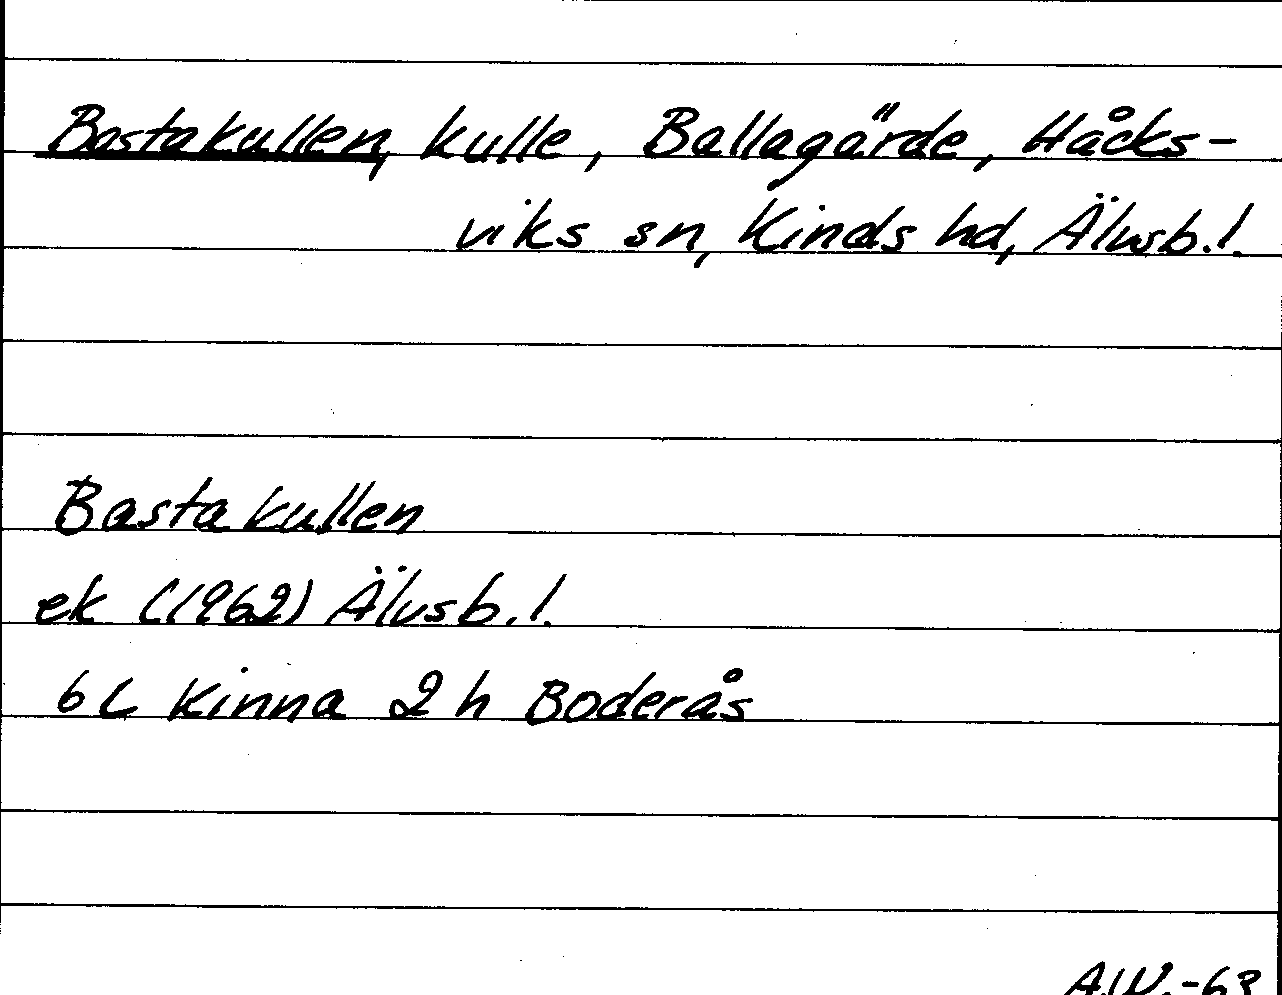 Bastakullen, kulle, Ballagärde, Håcks-
viks sn, Kinds hd, Älvsb.l.
Bastakullen
ek (1962) Älvsb.l.
6C Kinna 2h Boderås